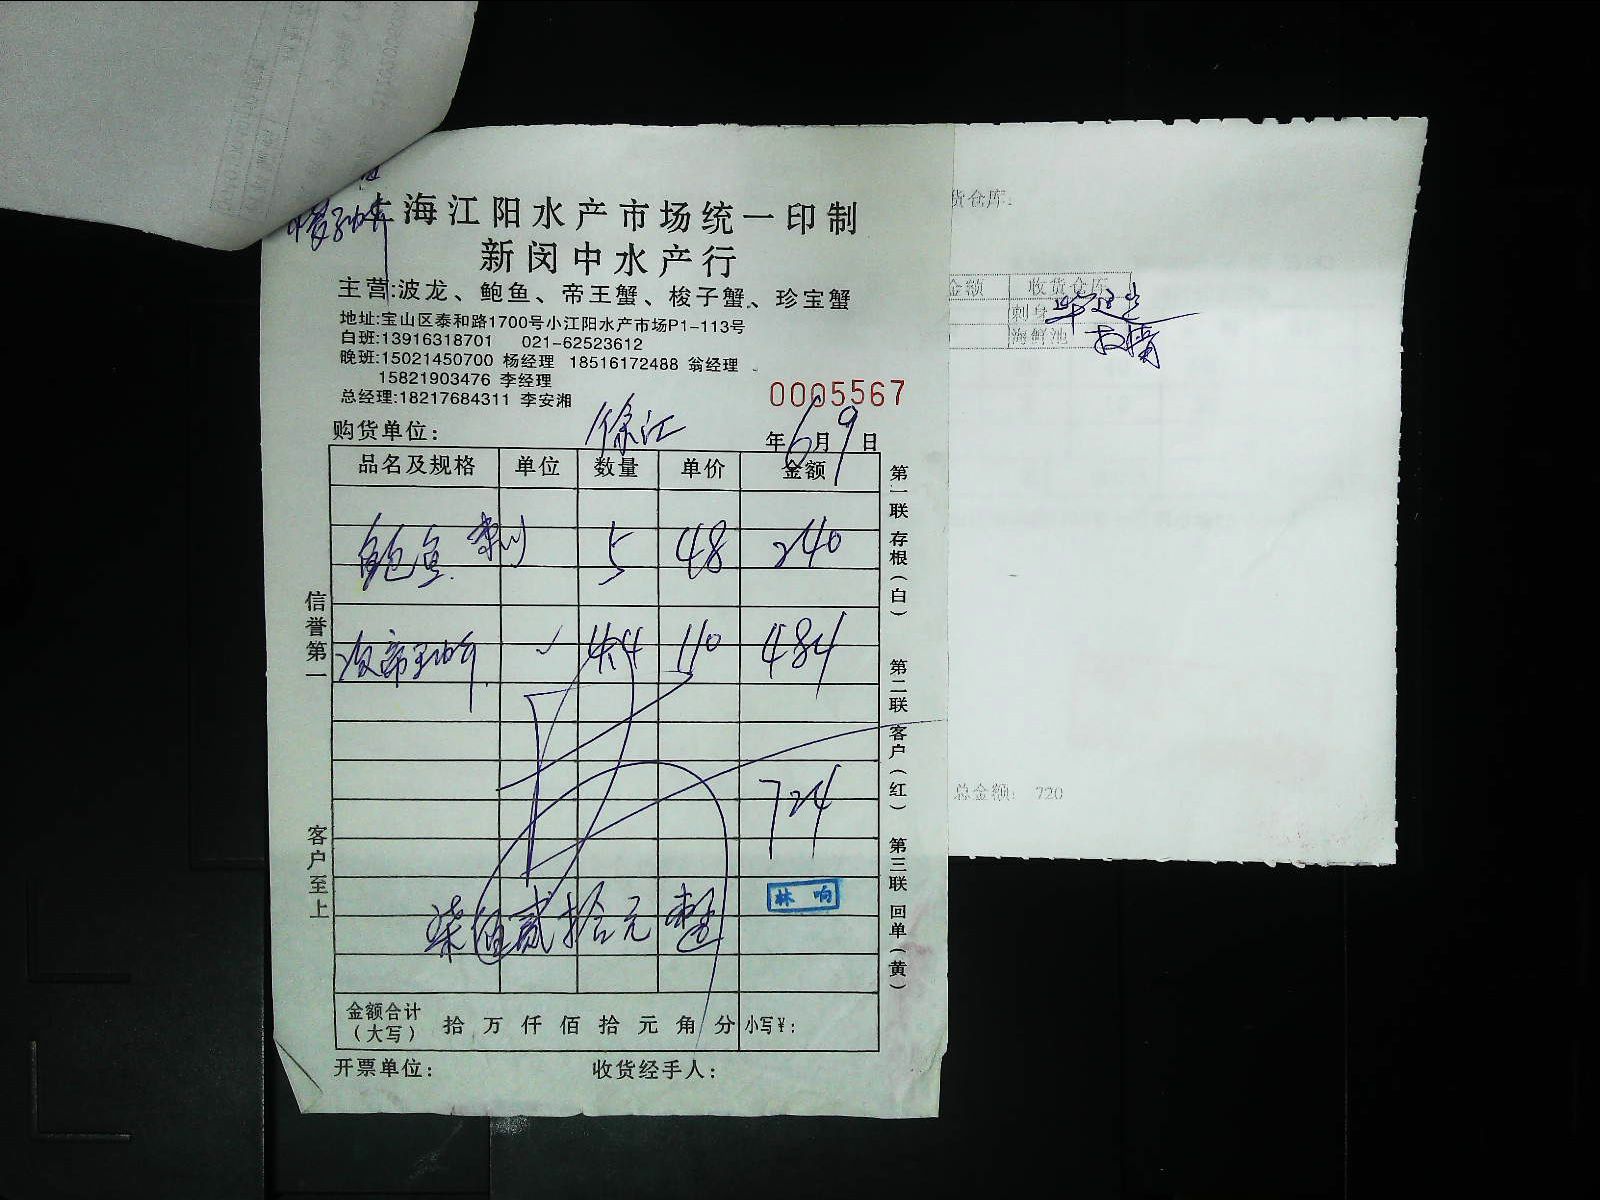 上海江阳水产市场统一印制
新闵中水产行
主营:波龙、鲍鱼、帝王蟹、梭子蟹、珍宝蟹
地址:宝山区泰和路1700号小江阳水产市场P1-113号
白班:13916318701 021-62523612
晚班:15021450700 杨经理 18516172488 翁经理
15821903476 李经理
总经理:18217684311 李安湘
0005567
购货单位: 徐汇 年6月9日
品名及规格 单位 数量 单价 金额
鲍鱼 刺 5 48 240
帝王 4.4 110 484
724
柒佰贰拾元整
林 响
金额合计(大写) 拾 万 仟 佰 拾 元 角 分 小写¥:
开票单位: 收货经手人:
信誉第一 客户至上
第一联 存根(白) 第二联 客户(红) 第三联 回单(黄)
货仓库:
金额 收货仓库
刺身
海鲜池
总金额: 720